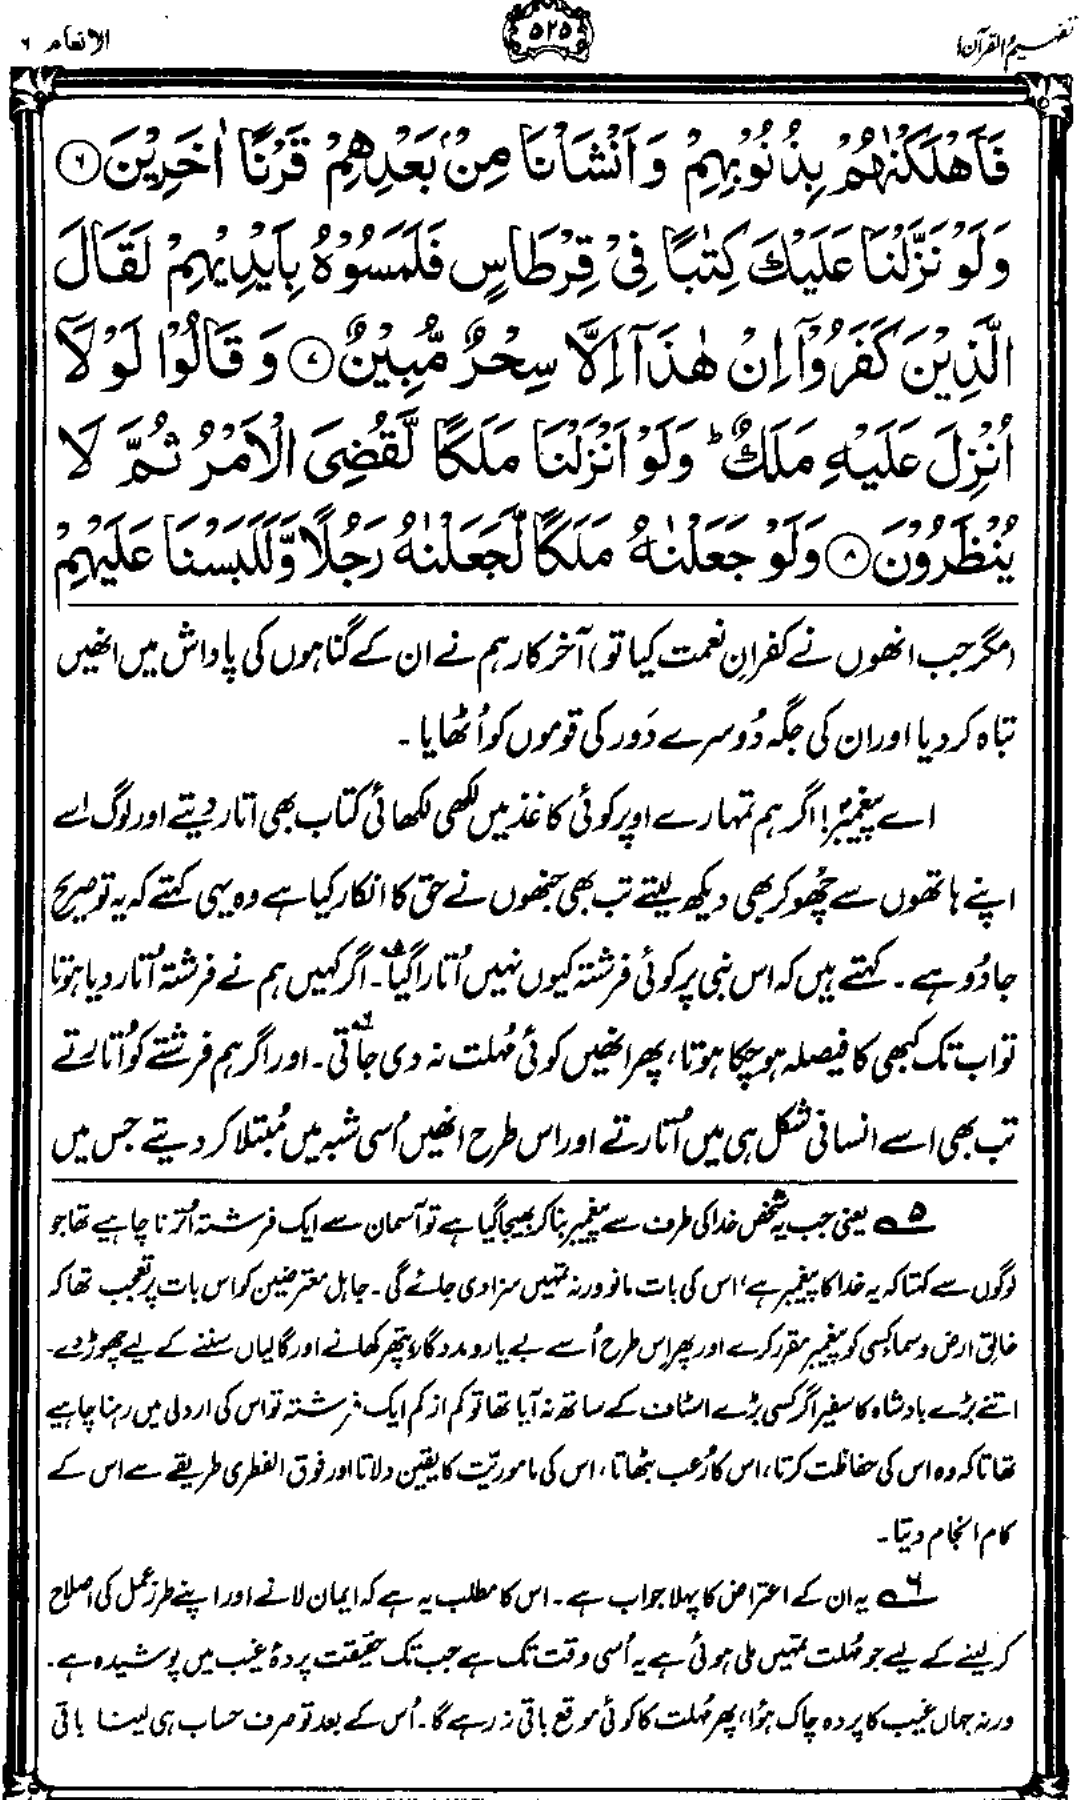 تفہیم القرآن ۱
۵۲۵
الانعام ۶
فَاَهْلَكْنٰهُمْ بِذُنُوْبِهِمْ وَ اَنْشَاْنَا مِنْۢ بَعْدِهِمْ قَرْنًا اٰخَرِيْنَ ۶
وَلَوْ نَزَّلْنَا عَلَيْكَ كِتٰبًا فِيْ قِرْطَاسٍ فَلَمَسُوْهُ بِاَيْدِيْهِمْ لَقَالَ
الَّذِيْنَ كَفَرُوْٓا اِنْ هٰذَآ اِلَّا سِحْرٌ مُّبِيْنٌ ۷ وَ قَالُوْا لَوْ لَآ
اُنْزِلَ عَلَيْهِ مَلَكٌ ؕ وَلَوْ اَنْزَلْنَا مَلَكًا لَّقُضِيَ الْاَمْرُ ثُمَّ لَا
يُنْظَرُوْنَ ۸ وَلَوْ جَعَلْنٰهُ مَلَكًا لَّجَعَلْنٰهُ رَجُلًا وَّلَلَبَسْنَا عَلَيْهِمْ
(مگر جب انھوں نے کفرانِ نعمت کیا تو) آخر کار ہم نے ان کے گناہوں کی پاداش میں انھیں
تباہ کر دیا اور ان کی جگہ دُوسرے دَور کی قوموں کو اُٹھایا ۔
اے پیغمبرؐ! اگر ہم تمہارے اوپر کوئی کاغذ میں لکھی لکھائی کتاب بھی اتار دیتے اور لوگ اسے
اپنے ہاتھوں سے چُھو کر بھی دیکھ لیتے تب بھی جنھوں نے حق کا انکار کیا ہے وہ یہی کہتے کہ یہ تو صریح
جادُو ہے ۔ کہتے ہیں کہ اس نبی پر کوئی فرشتہ کیوں نہیں اُتارا گیا ۵۔ اگر کہیں ہم نے فرشتہ اُتار دیا ہوتا
تو اب تک کبھی کا فیصلہ ہو چکا ہوتا، پھر انھیں کوئی مُہلت نہ دی جاتی ۶۔ اور اگر ہم فرشتے کو اُتارتے
تب بھی اسے انسانی شکل ہی میں اُتارتے اور اس طرح انھیں اُسی شبہ میں مُبتلا کر دیتے جس میں
۵ یعنی جب یہ شخص خدا کی طرف سے پیغمبر بنا کر بھیجا گیا ہے تو آسمان سے ایک فرشتہ اُترنا چاہیے تھا جو
لوگوں سے کہتا کہ یہ خدا کا پیغمبر ہے، اس کی بات مانو ورنہ تمہیں سزا دی جائے گی ۔ جاہل معترضین کو اس بات پر تعجب تھا کہ
خالقِ ارض و سما کسی کو پیغمبر مقرر کرے اور پھر اس طرح اُسے بے یار و مددگار، پتھر کھانے اور گالیاں سننے کے لیے چھوڑ دے۔
اتنے بڑے بادشاہ کا سفیر اگر کسی بڑے اسٹاف کے ساتھ نہ آیا تھا تو کم از کم ایک فرشتہ تو اس کی اردلی میں رہنا چاہیے
تھا تاکہ وہ اس کی حفاظت کرتا، اس کا رُعب بٹھاتا، اس کی ماموریّت کا یقین دلاتا اور فوق الفطری طریقے سے اس کے
کام انجام دیتا ۔
۶ یہ ان کے اعتراض کا پہلا جواب ہے ۔ اس کا مطلب یہ ہے کہ ایمان لانے اور اپنے طرزِ عمل کی اصلاح
کر لینے کے لیے جو مُہلت تمہیں ملی ہوئی ہے یہ اُسی وقت تک ہے جب تک حقیقت پردۂ غیب میں پوشیدہ ہے ۔
ورنہ جہاں غیب کا پردہ چاک ہوا، پھر مُہلت کا کوئی موقع باقی نہ رہے گا ۔ اُس کے بعد تو صرف حساب ہی لینا باقی